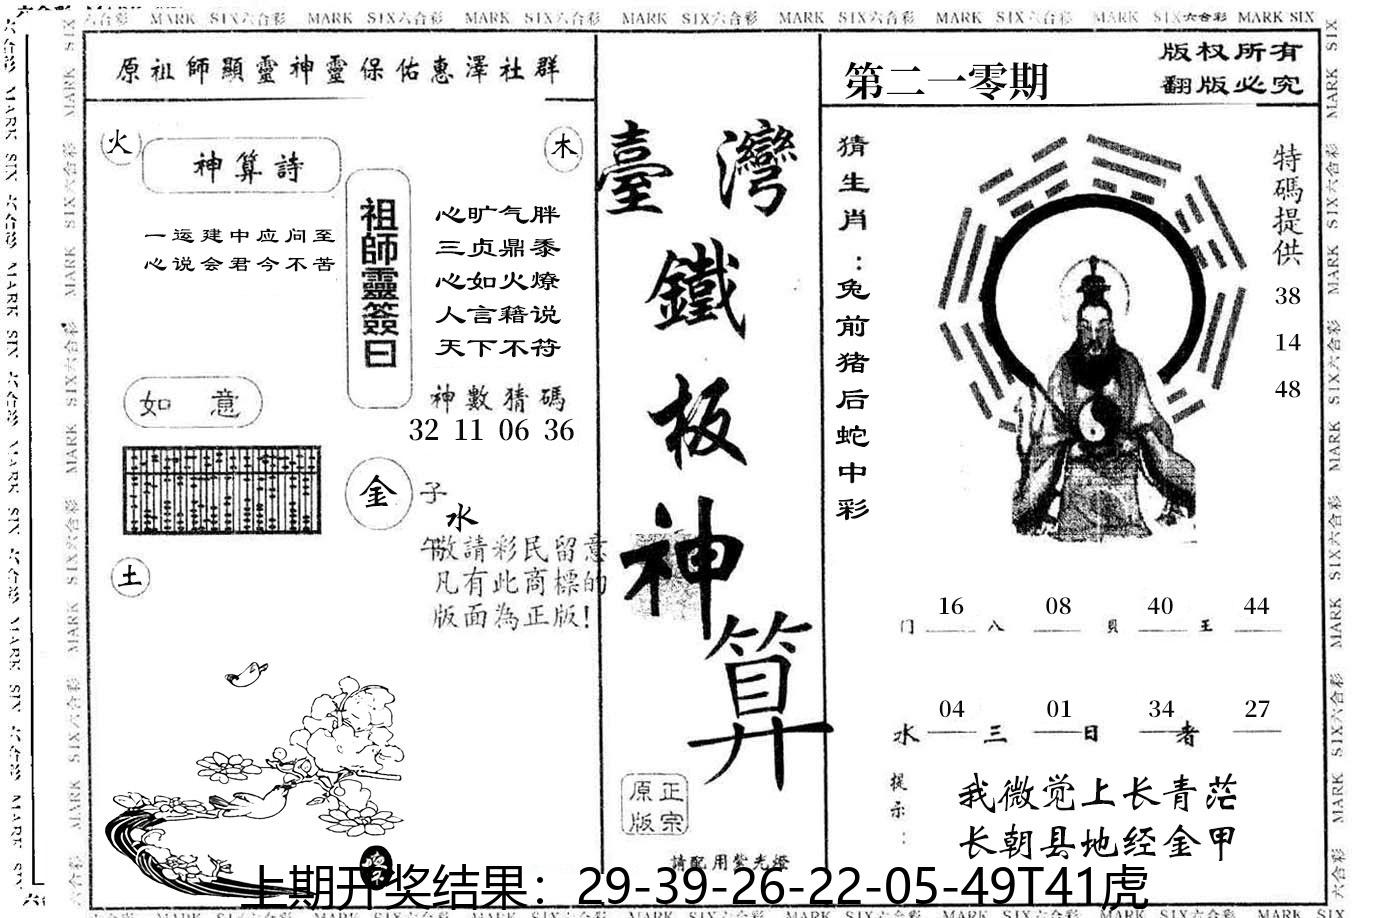 MARK SIX六合彩 MARK SIX六合彩 MARK SIX六合彩 MARK SIX六合彩 MARK SIX六合彩 MARK SIX六合彩 MARK SIX六合彩 MARK SIX
原祖師顯靈神靈保佑惠澤社群
火
神算詩
木
一运建中应问至
心说会君今不苦
祖師靈簽曰
心旷气胖
三贞鼎黍
心如火燎
人言籍说
天下不符
神數猜碼
32 11 06 36
如 意
金
子
水
午
敬請彩民留意
凡有此商標的
版面為正版!
土
臺灣
鐵
板
神
算
原正
版宗
請配用紫光燈
第二一零期
版权所有
翻版必究
猜生肖：兔前猪后蛇中彩
特碼提供
38
14
48
16 08 40 44
门 八 貝 王
04 01 34 27
水 三 日 者
提示：
我微觉上长青茫
长朝县地经金甲
上期开奖结果：29-39-26-22-05-49T41虎